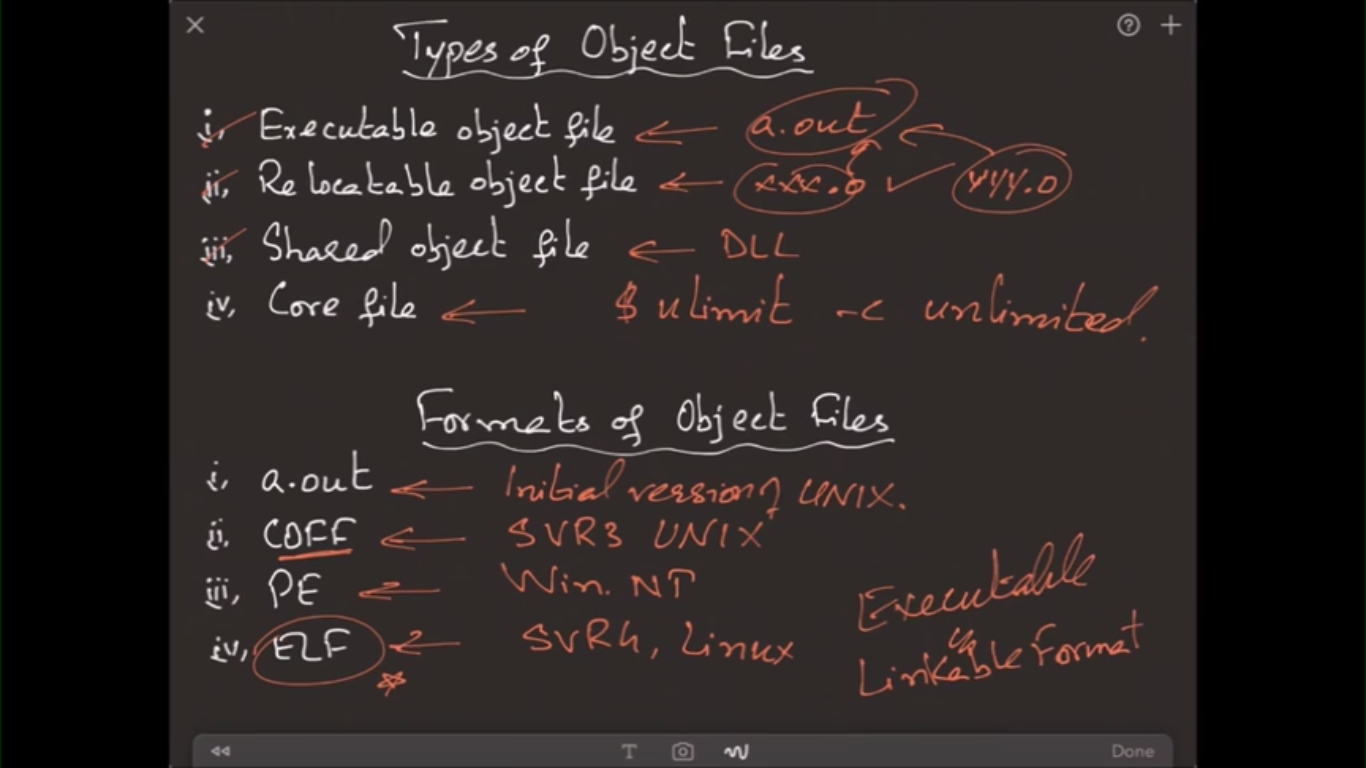 Types of Object Files
i, Executable object file ← a.out
ii, Relocatable object file ← xxx.o ✓ yyy.o
iii, Shared object file ← DLL
iv, Core file ← $ ulimit -c unlimited.
Formats of Object Files
i, a.out ← Initial version of UNIX.
ii, COFF ← SVR3 UNIX
iii, PE ← Win. NT
iv, ELF ← SVR4, Linux
Executable
&
Linkable Format
T Done